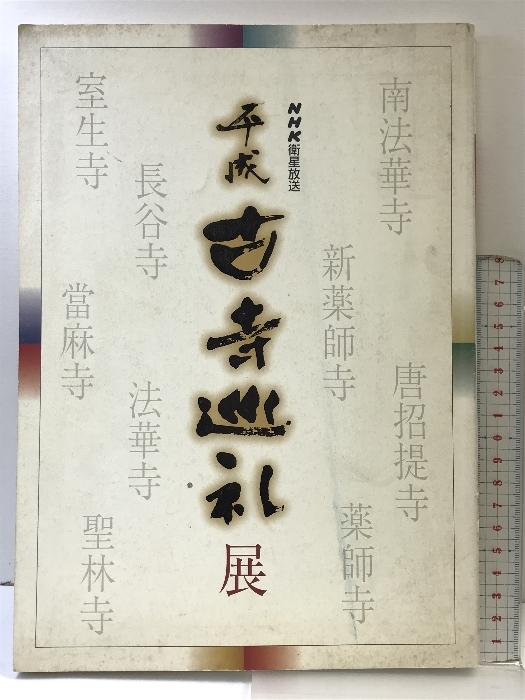 NHK衛星放送
平成
古寺巡礼
展
南法華寺
新薬師寺
唐招提寺
薬師寺
室生寺
長谷寺
當麻寺
法華寺
聖林寺
8
7
6
5
4
3
2
1
0
9
8
7
6
5
4
3
2
1